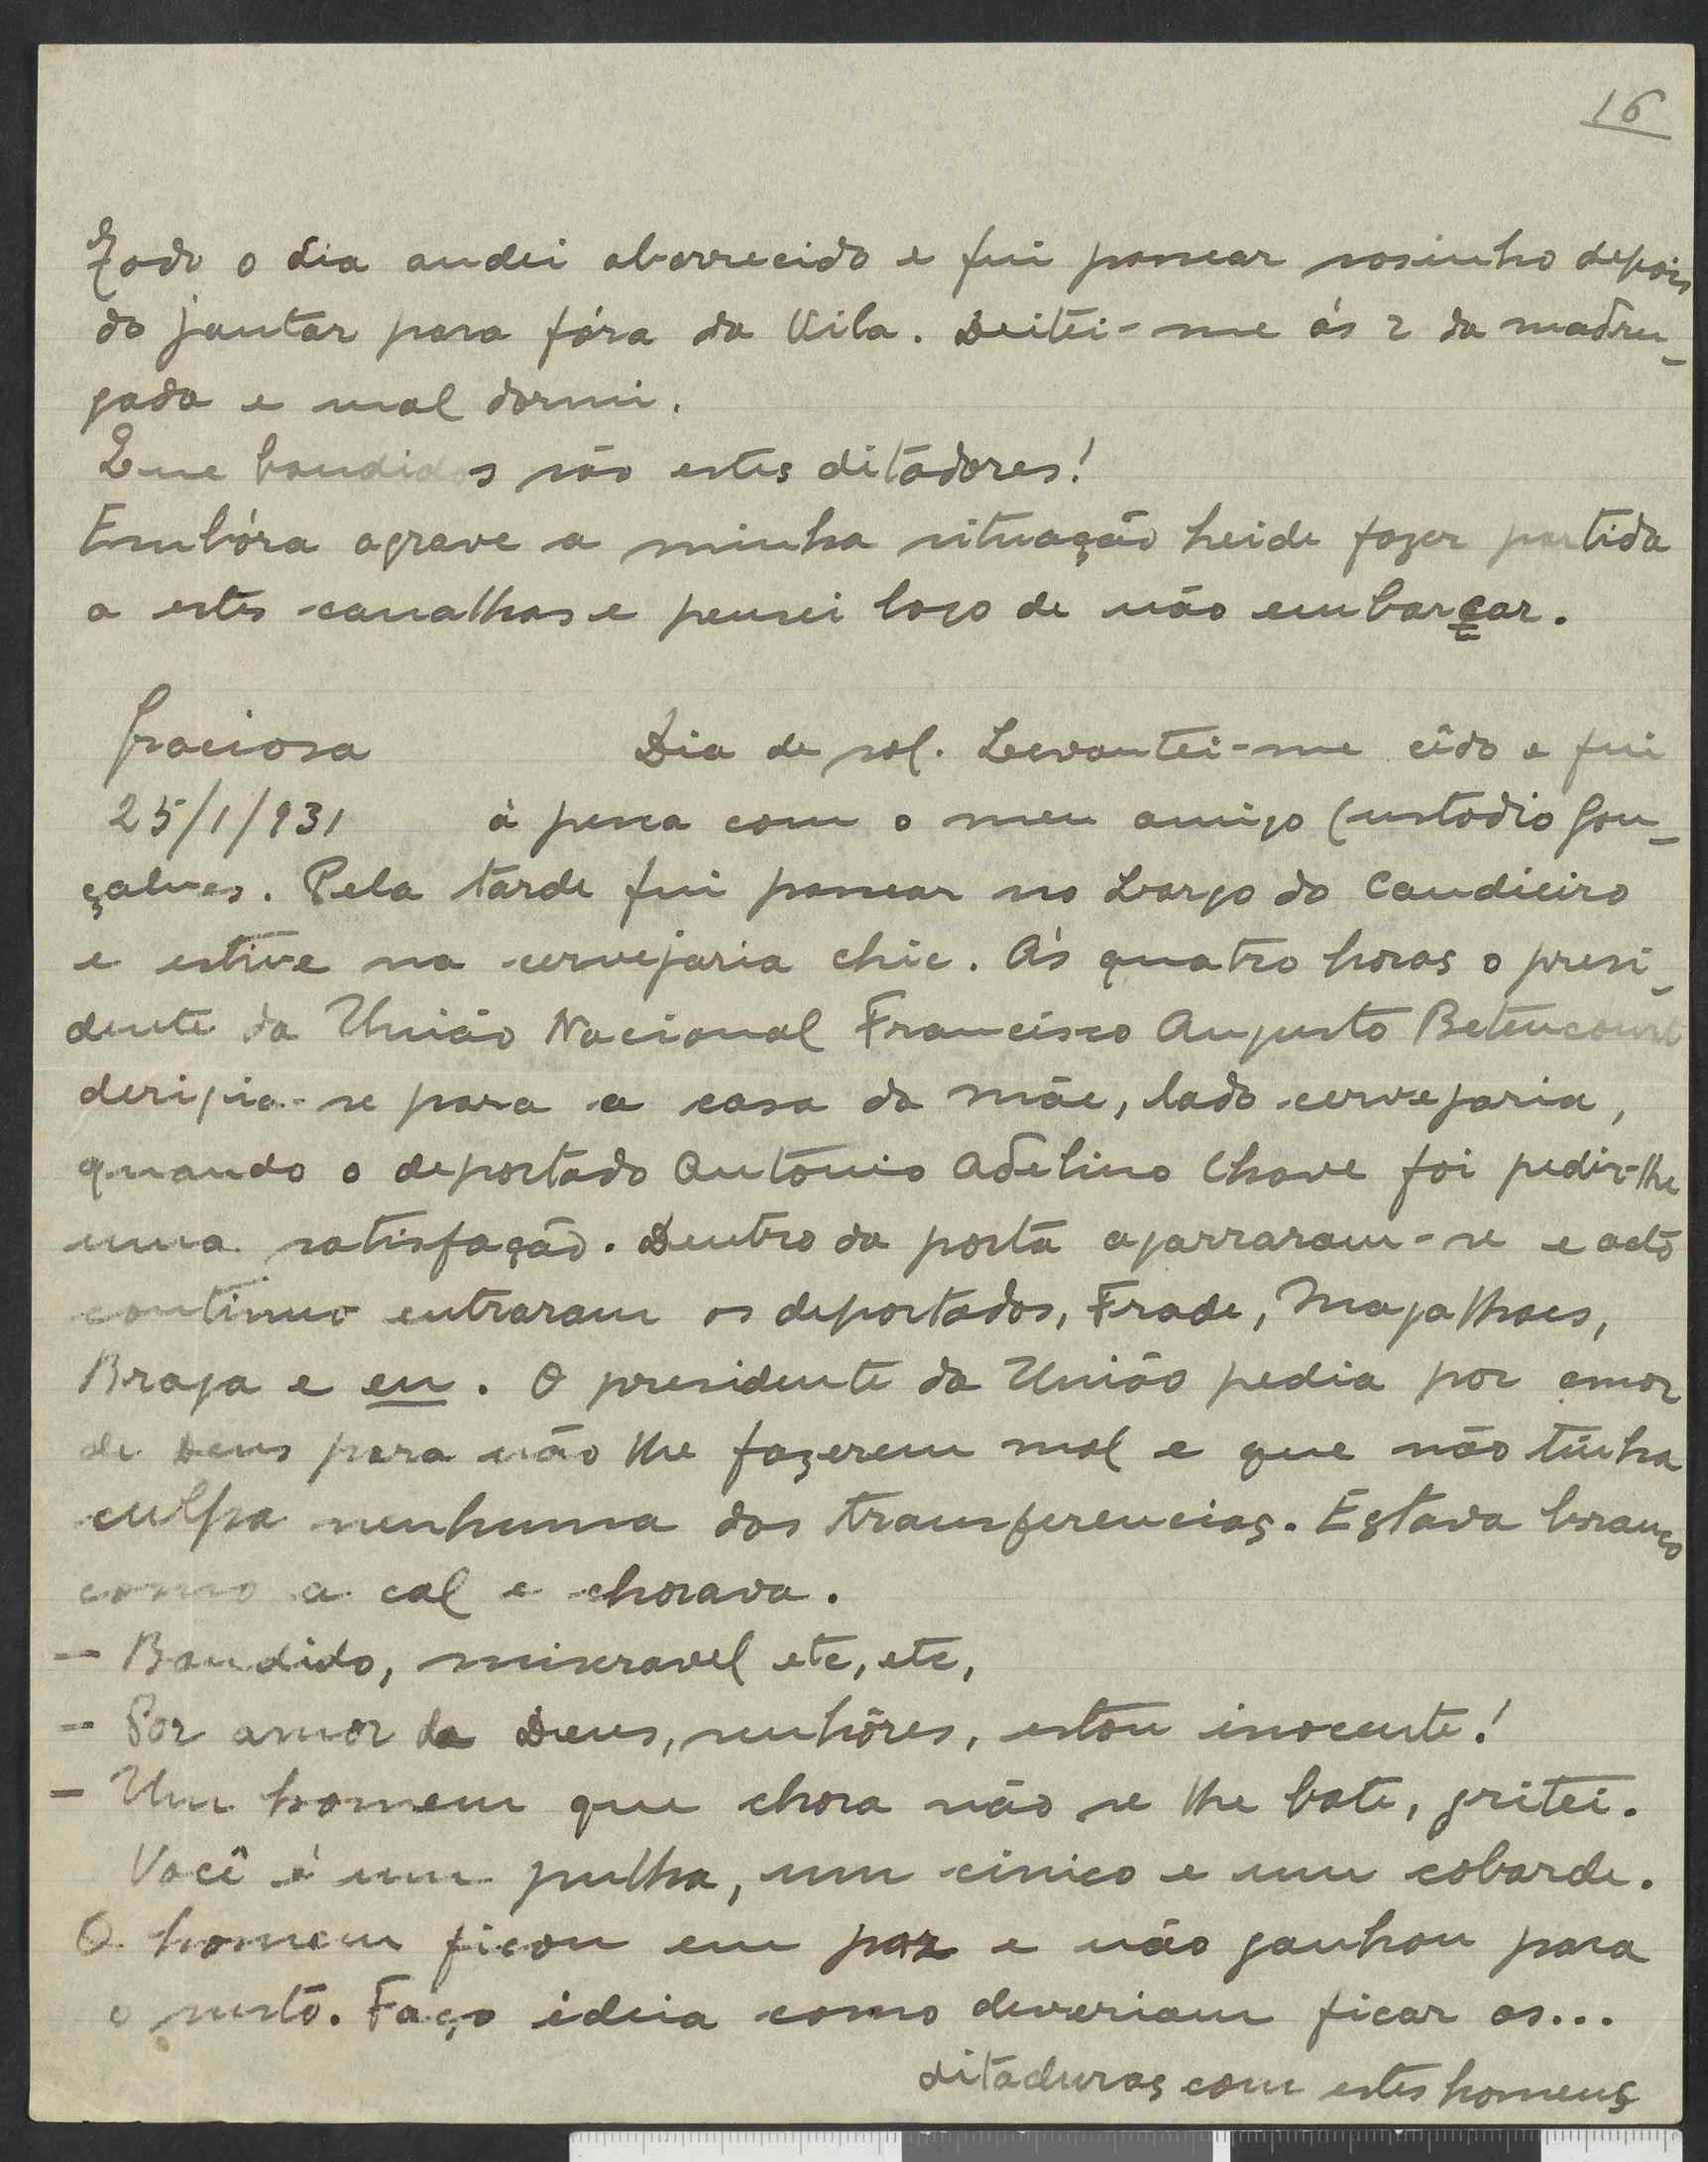 16
Todo o dia andei aborrecido e fui passear sosinho depois
do jantar para fóra da Vila. Deitei-me ás 2 da madru-
gada e mal dormi.
Que bandidos são estes ditadores!
Embóra agrave a minha situação heide fazer partida
a estes canalhas e pensei logo de não embarcar.
Graciosa Dia de sol. Levantei-me cêdo e fui
25/1/931 á pesca com o meu amigo Custodio Gon-
çalves. Pela tarde fui passear no Largo do Candieiro
e estive na cervejaria chic. Ás quatro horas o presi-
dente da União Nacional Francisco Augusto Betencourt
derigia-se para a casa da mãe, lado cervejaria,
quando o deportado António Adelino Chave foi pedir-lhe
uma satisfação. Dentro da porta agarraram-se e acto
continuo entraram os deportados, Frade, Magalhaes,
Braga e eu. O presidente da União pedia por amor
de Deus para não lhe fazerem mal e que não tinha
culpa nenhuma das transferencias. Estava branco
como a cal e chorava.
- Bandido, miseravel etc, etc,
- Por amor de Deus, senhôres, estou inocente!
- Um homem que chora não se lhe bate, gritei.
Você é um pulha, um cinico e um cobarde.
O homem ficou em paz e não ganhou para
o susto. Faço ideia como deveriam ficar as...
ditaduras com estes homens